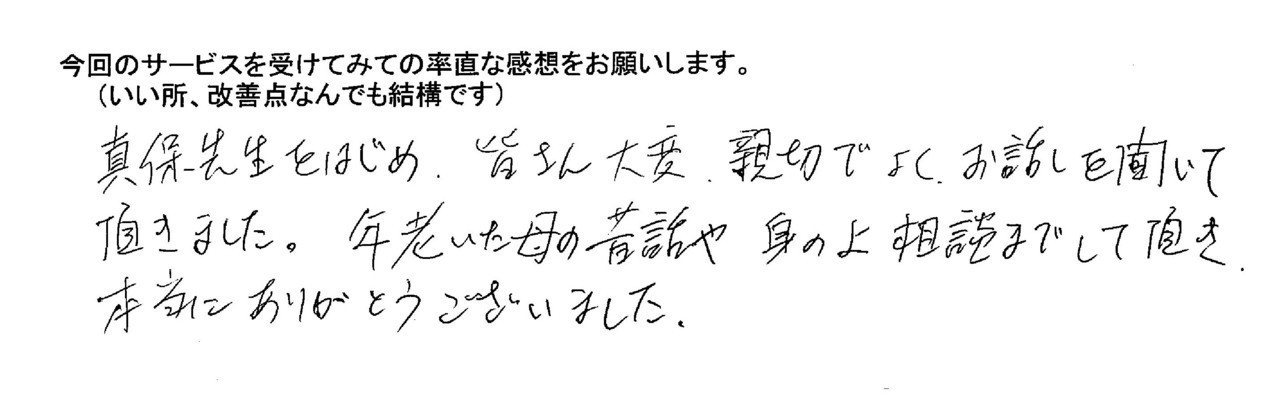 今回のサービスを受けてみての率直な感想をお願いします。
（いい所、改善点なんでも結構です）
真保先生をはじめ、皆さん大変、親切でよく、お話しを聞いて
頂きました。年老いた母の昔話や身の上相談までして頂き、
本当にありがとうございました。